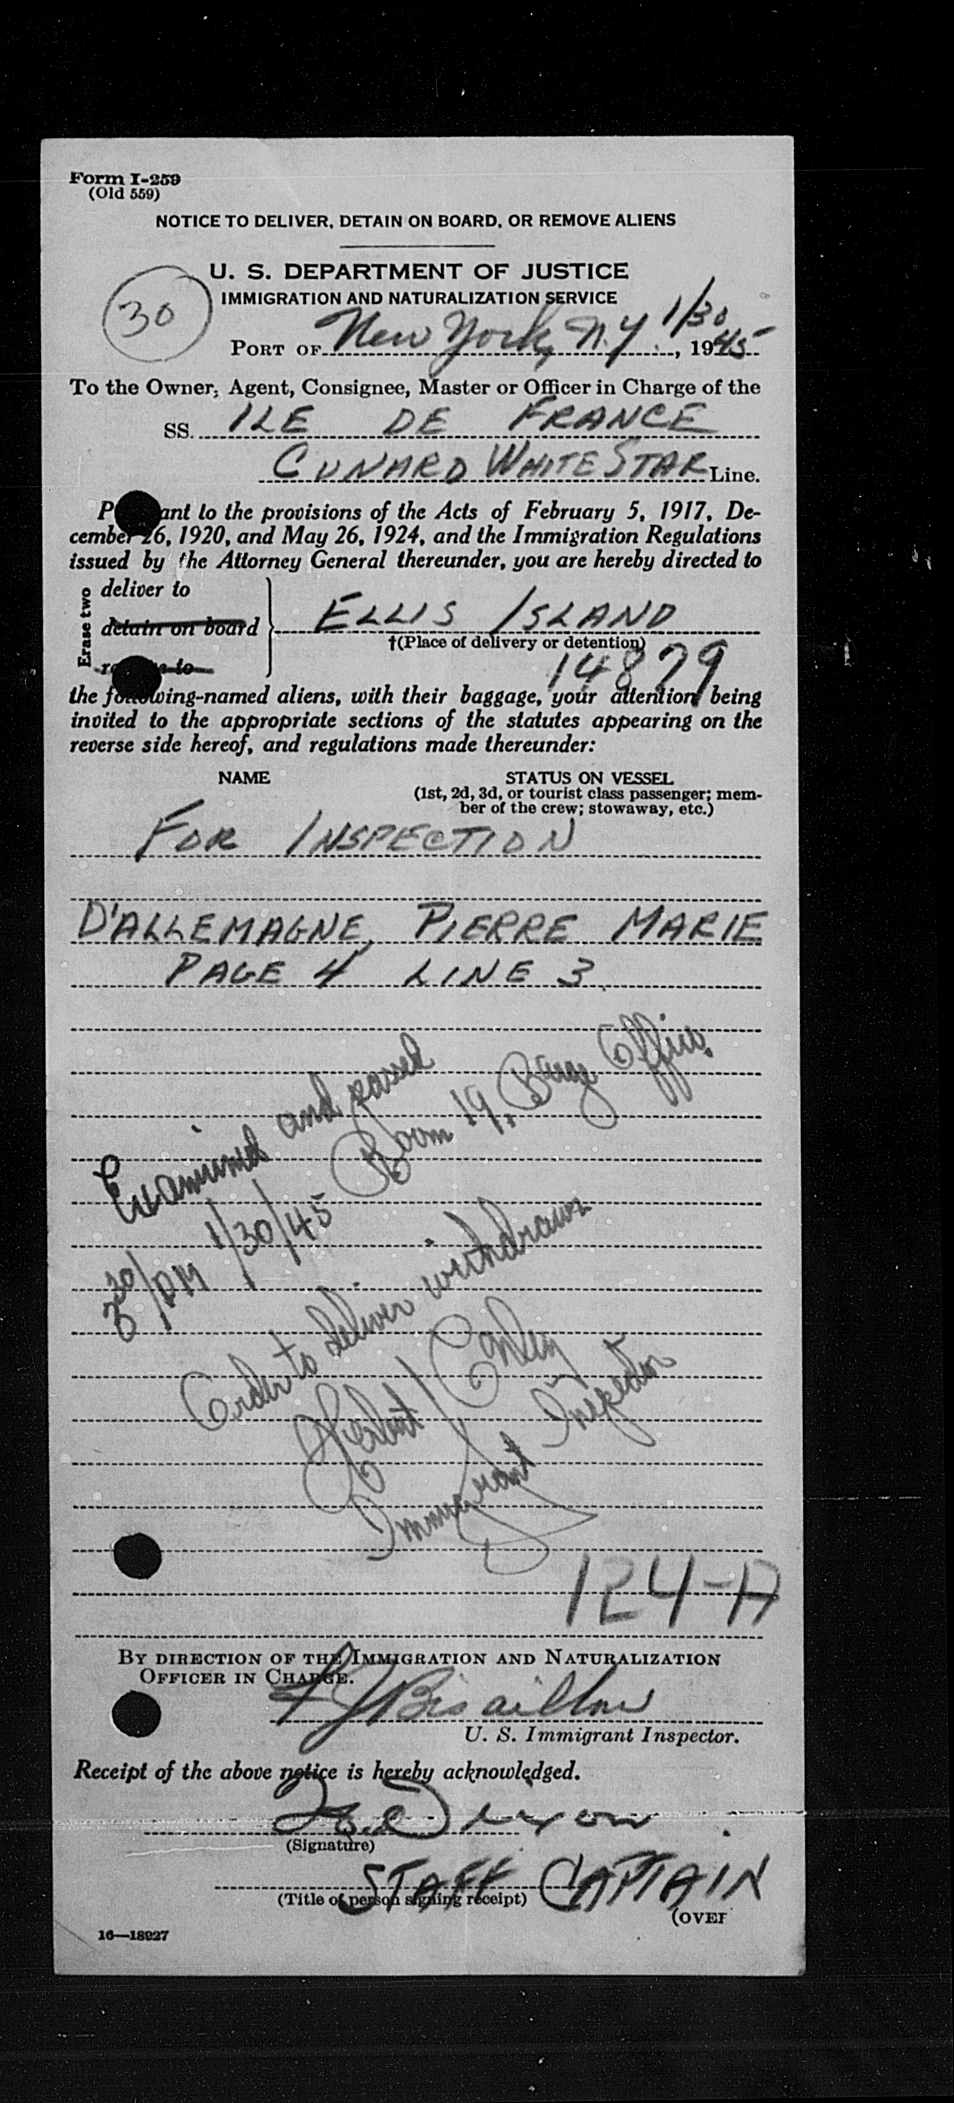 Form I-259
(Old 559)
NOTICE TO DELIVER, DETAIN ON BOARD, OR REMOVE ALIENS
U. S. DEPARTMENT OF JUSTICE
IMMIGRATION AND NATURALIZATION SERVICE
30
PORT OF New York, N.Y. 1/30, 1945
To the Owner, Agent, Consignee, Master or Officer in Charge of the
SS. ILE DE FRANCE
CUNARD WHITE STAR Line.
P ant to the provisions of the Acts of February 5, 1917, De-
cember 26, 1920, and May 26, 1924, and the Immigration Regulations
issued by the Attorney General thereunder, you are hereby directed to
Erase two
deliver to
detain on board
ELLIS ISLAND
†(Place of delivery or detention)
to
14879
the following-named aliens, with their baggage, your attention being
invited to the appropriate sections of the statutes appearing on the
reverse side hereof, and regulations made thereunder:
NAME
STATUS ON VESSEL
(1st, 2d, 3d, or tourist class passenger; mem-
ber of the crew; stowaway, etc.)
FOR INSPECTION
D'ALLEMAGNE, PIERRE MARIE
PAGE 4 LINE 3
Examined and passed
330/PM 1/30/45 Room 19, Barge Office.
Order to deliver withdrawn
Conley
Immigrant Inspector
124-A
BY DIRECTION OF THE IMMIGRATION AND NATURALIZATION
OFFICER IN CHARGE.
Bisaillon
U. S. Immigrant Inspector.
Receipt of the above notice is hereby acknowledged.
Dixon
(Signature)
STAFF CAPTAIN
(Title of person signing receipt)
(OVER
16—18927